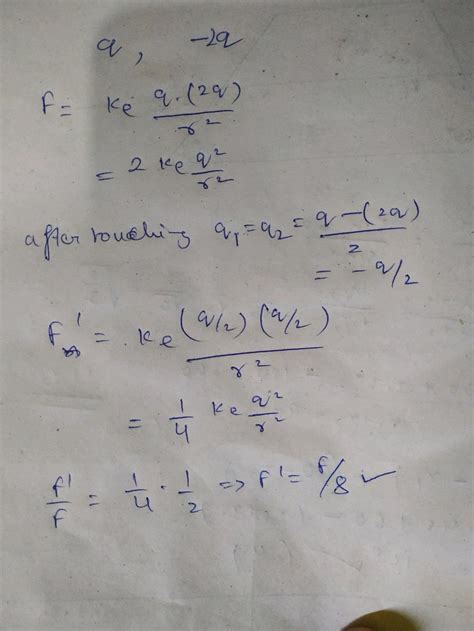 q, -2q
F = Ke q.(2q)/r²
= 2 Ke q²/r²
after touching q₁=q₂= q-(2q)/2
= -q/2
F' = Ke (q/2)(q/2)/r²
= 1/4 Ke q²/r²
F'/F = 1/4 · 1/2 => F' = F/8 ✓